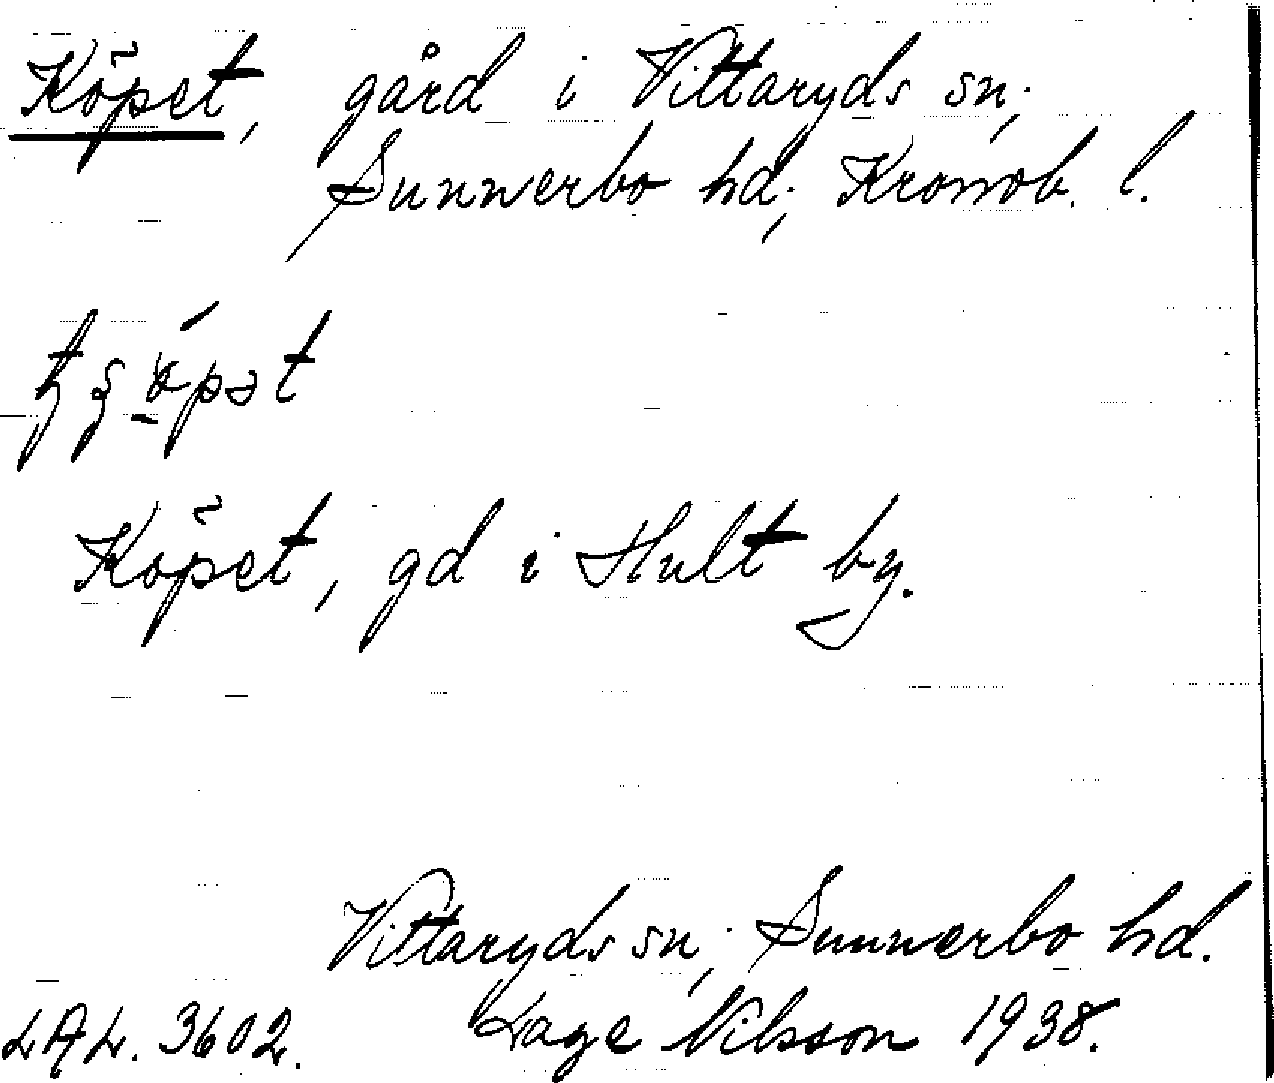 Köpet, gård i Vittaryds sn;
Sunnerbo hd; Kronob. l.
Köpet, gd i Hult by.
Vittaryds sn; Sunnerbo hd.
LAL. 3602. Lage Nilsson 1938.